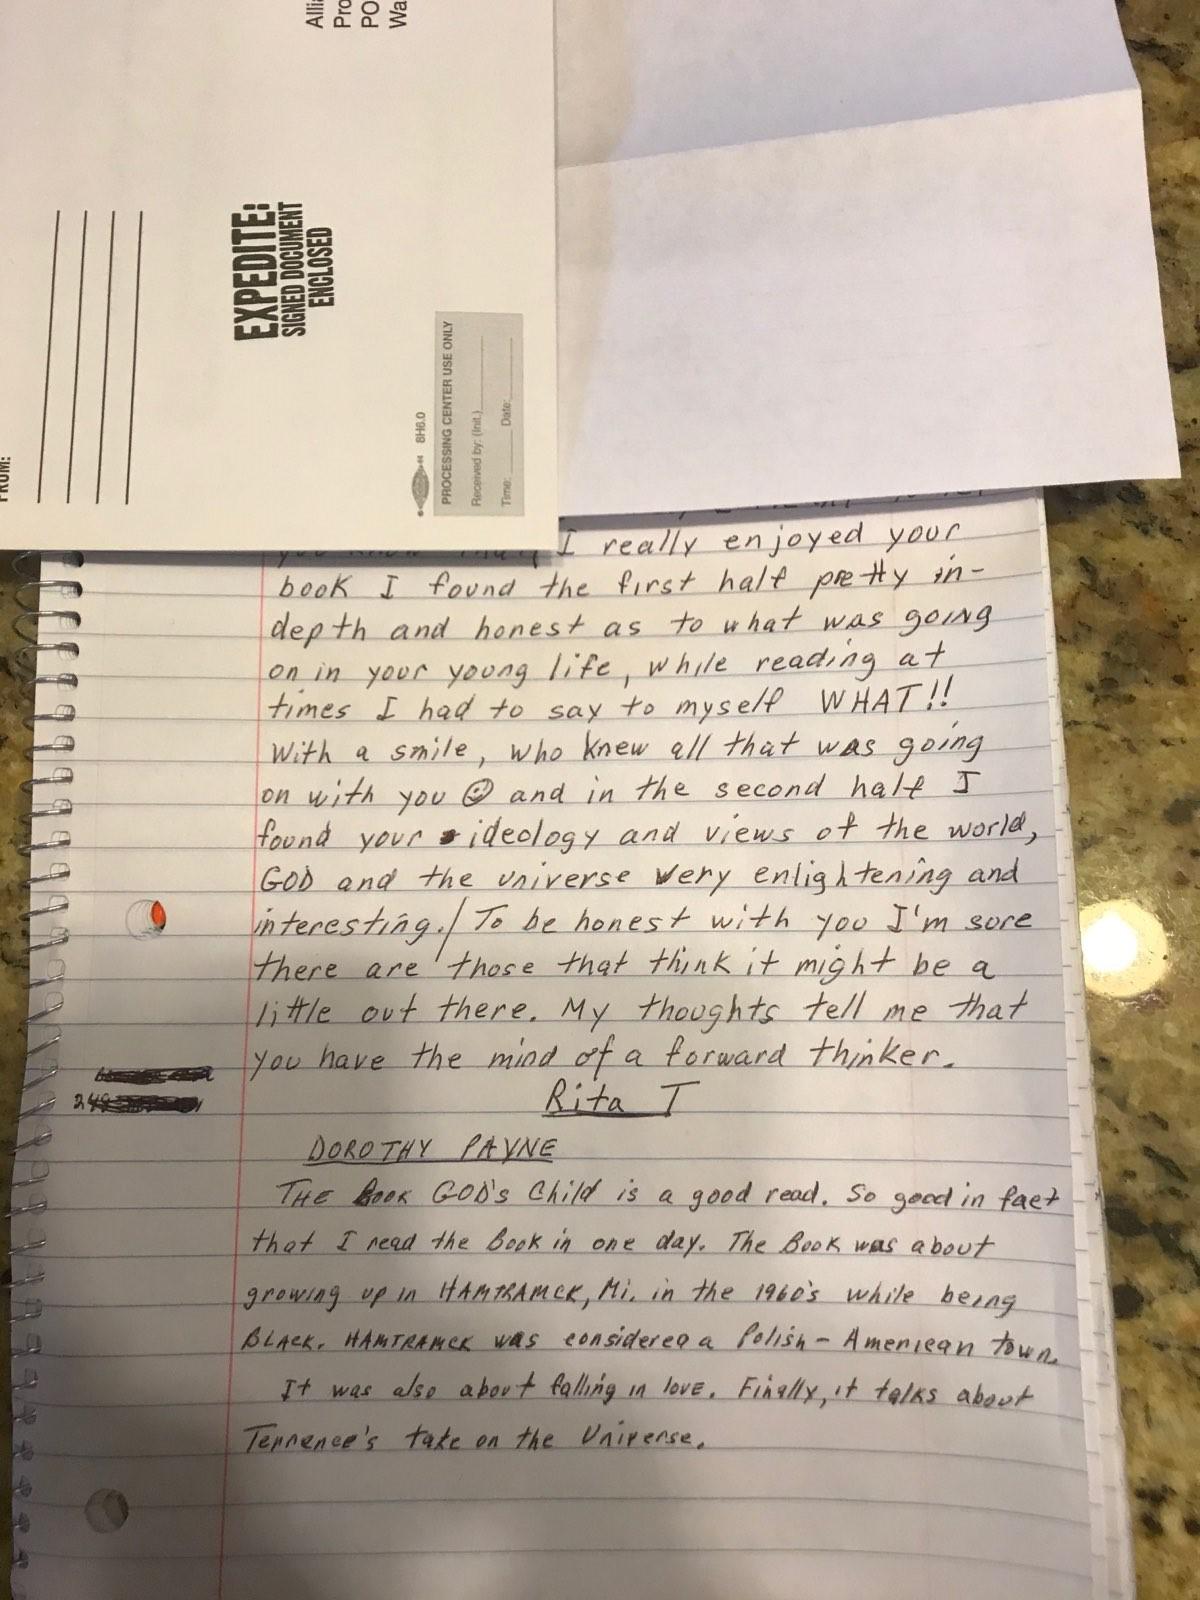 Alli
Pro
PO
Wa
FROM:
EXPEDITE:
SIGNED DOCUMENT
ENCLOSED
8H6.0
PROCESSING CENTER USE ONLY
Received by: (Init.)
Time: Date:
you know that, I really enjoyed your
book I found the first half pretty in-
depth and honest as to what was going
on in your young life, while reading at
times I had to say to myself WHAT!!
With a smile, who knew all that was going
on with you ☺ and in the second half I
found your ideology and views of the world,
GOD and the universe very enlightening and
interesting./ To be honest with you I'm sure
there are those that think it might be a
little out there. My thoughts tell me that
you have the mind of a forward thinker.
Rita T
DOROTHY PAYNE
THE Book GOD's Child is a good read. So good in fact
that I read the Book in one day. The Book was about
growing up in HAMTRAMCK, Mi. in the 1960's while being
BLACK. HAMTRAMCK was considered a Polish - American town.
It was also about falling in love. Finally, it talks about
Terrence's take on the Universe.